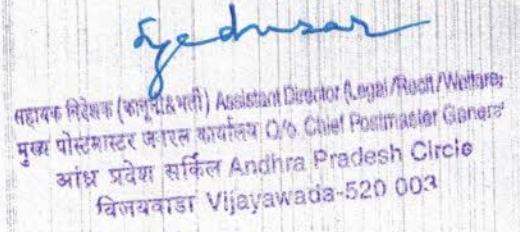 सहायक निदेशक (कानूनी&भर्ती) Assistant Director (Legal/Rectt/Welfare)
मुख्य पोस्टमास्टर जनरल कार्यालय O/o. Chief Postmaster General
आंध्र प्रदेश सर्किल Andhra Pradesh Circle
विजयवाडा Vijayawada-520 003